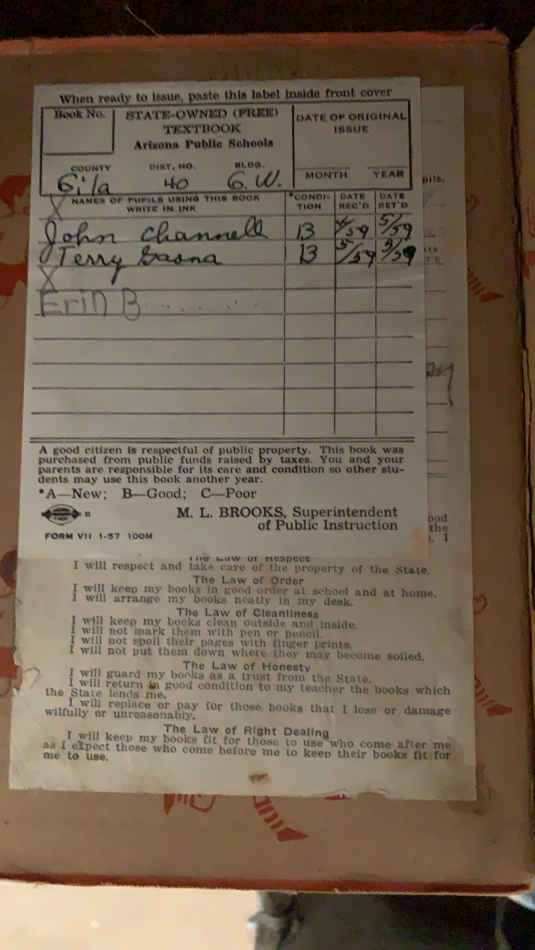 When ready to issue, paste this label inside front cover
Book No.
STATE-OWNED (FREE)
TEXTBOOK
Arizona Public Schools
DATE OF ORIGINAL
ISSUE
COUNTY DIST. NO. BLDG.
MONTH YEAR
Gila 40 G.W.
X NAMES OF PUPILS USING THIS BOOK
WRITE IN INK
*CONDI-
TION
DATE
REC'D
DATE
RET'D
John Channell B 4/59 5/59
Terry Gaona B 5/59 5/59
X
Erin B
A good citizen is respectful of public property. This book was
purchased from public funds raised by taxes. You and your
parents are responsible for its care and condition so other stu-
dents may use this book another year.
*A—New; B—Good; C—Poor
M. L. BROOKS, Superintendent
of Public Instruction
FORM VII 1-57 100M
The Law of Respect
I will respect and take care of the property of the State.
The Law of Order
I will keep my books in good order at school and at home.
I will arrange my books neatly in my desk.
The Law of Cleanliness
I will keep my books clean outside and inside.
I will not mark them with pen or pencil.
I will not spoil their pages with finger prints.
I will not put them down where they may become soiled.
The Law of Honesty
I will guard my books as a trust from the State.
I will return in good condition to my teacher the books which
the State lends me.
I will replace or pay for those books that I lose or damage
wilfully or unreasonably.
The Law of Right Dealing
I will keep my books fit for those to use who come after me
as I expect those who come before me to keep their books fit for
me to use.